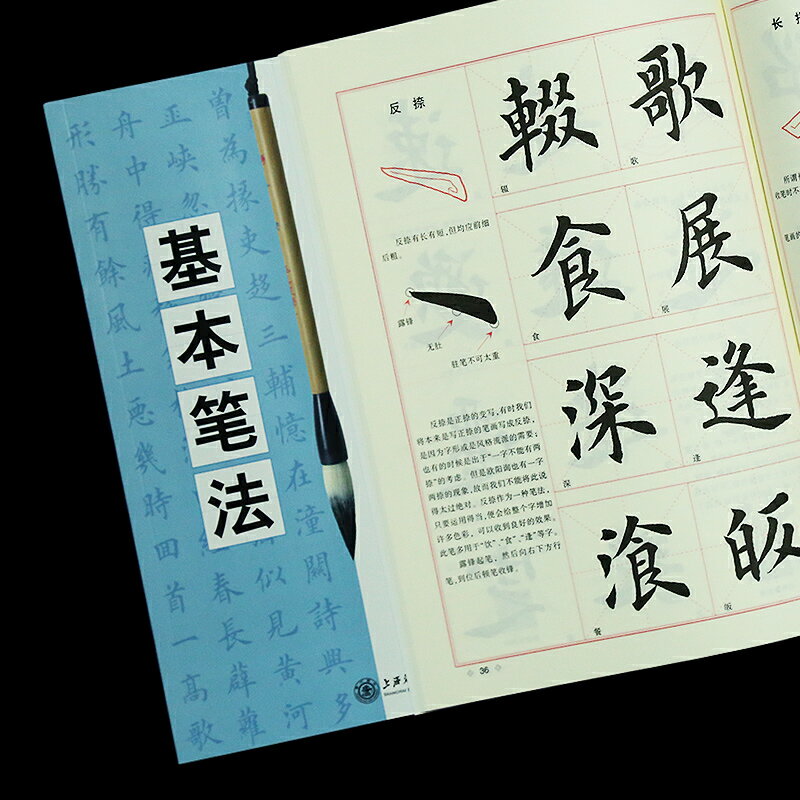 曾為掾吏趨三輔憶在潼關詩興多
巫峽忽
似見黄河
舟中得
春長薜蘿
形勝有餘風土惡幾時回首一高歌
基本笔法
上海
反捺
反捺有长有短,但均应前细
后粗。
露锋
无肚
驻笔不可太重
反捺是正捺的变写,有时我们
将本来是写正捺的笔画写成反捺,
是因为字形或是风格流派的需要;
也有的时候是出于“一字不能有两
捺”的考虑。但是欧阳询也有一字
两捺的现象,故而我们不能将此说
得太过绝对。反捺作为一种笔法,
只要运用得当,便会给整个字增加
许多色彩,可以收到良好的效果。
此笔多用于“饮”、“食”、“逢”等字。
露锋起笔,然后向右下方行
笔,到位后顿笔收锋。
輟
歌
辍
歌
食
展
食
展
深
逢
深
逢
湌
皈
餐
皈
36
长
所谓
收笔时不
笔画的